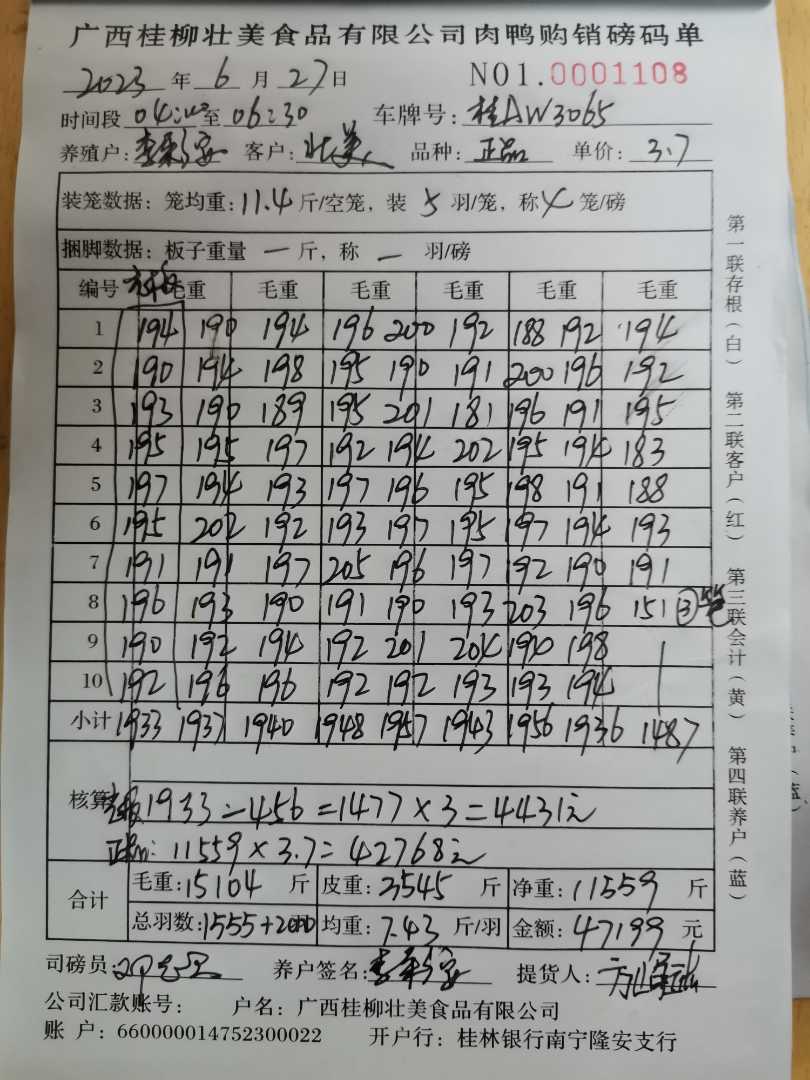 广西桂柳壮美食品有限公司肉鸭购销磅码单
2023年6月27日 NO1.0001108
时间段04:00至06:30 车牌号:桂AW3065
养殖户: 客户:壮美 品种:正品 单价:3.7
装笼数据:笼均重:11.4斤/空笼,装5羽/笼,称4笼/磅
捆脚数据:板子重量一斤,称一羽/磅
编号 毛重 毛重 毛重 毛重 毛重 毛重
1 194 190 194 196 200 192 188 192 194
2 190 194 198 195 190 191 200 196 192
3 193 190 189 195 201 181 196 191 195
4 195 195 197 192 194 202 195 194 183
5 197 194 193 197 196 195 198 191 188
6 195 202 192 193 197 195 197 194 193
7 191 191 197 205 196 197 192 190 191
8 196 193 190 191 190 193 203 196 151 ③笼
9 190 192 194 192 201 204 190 198
10 192 196 196 192 192 193 193 194
小计 1933 1937 1940 1948 1957 1943 1956 1936 1487
核算 1933-456=1477×3=4431元
正品:11559×3.7=42768元
合计
毛重:15104斤 皮重:3545斤 净重:11559斤
总羽数:1555+200羽 均重:7.43斤/羽 金额:47199元
司磅员: 养户签名: 提货人:
公司汇款账号: 户名:广西桂柳壮美食品有限公司
账 户:660000014752300022 开户行:桂林银行南宁隆安支行
第一联存根(白) 第二联客户(红) 第三联会计(黄) 第四联养户(蓝)